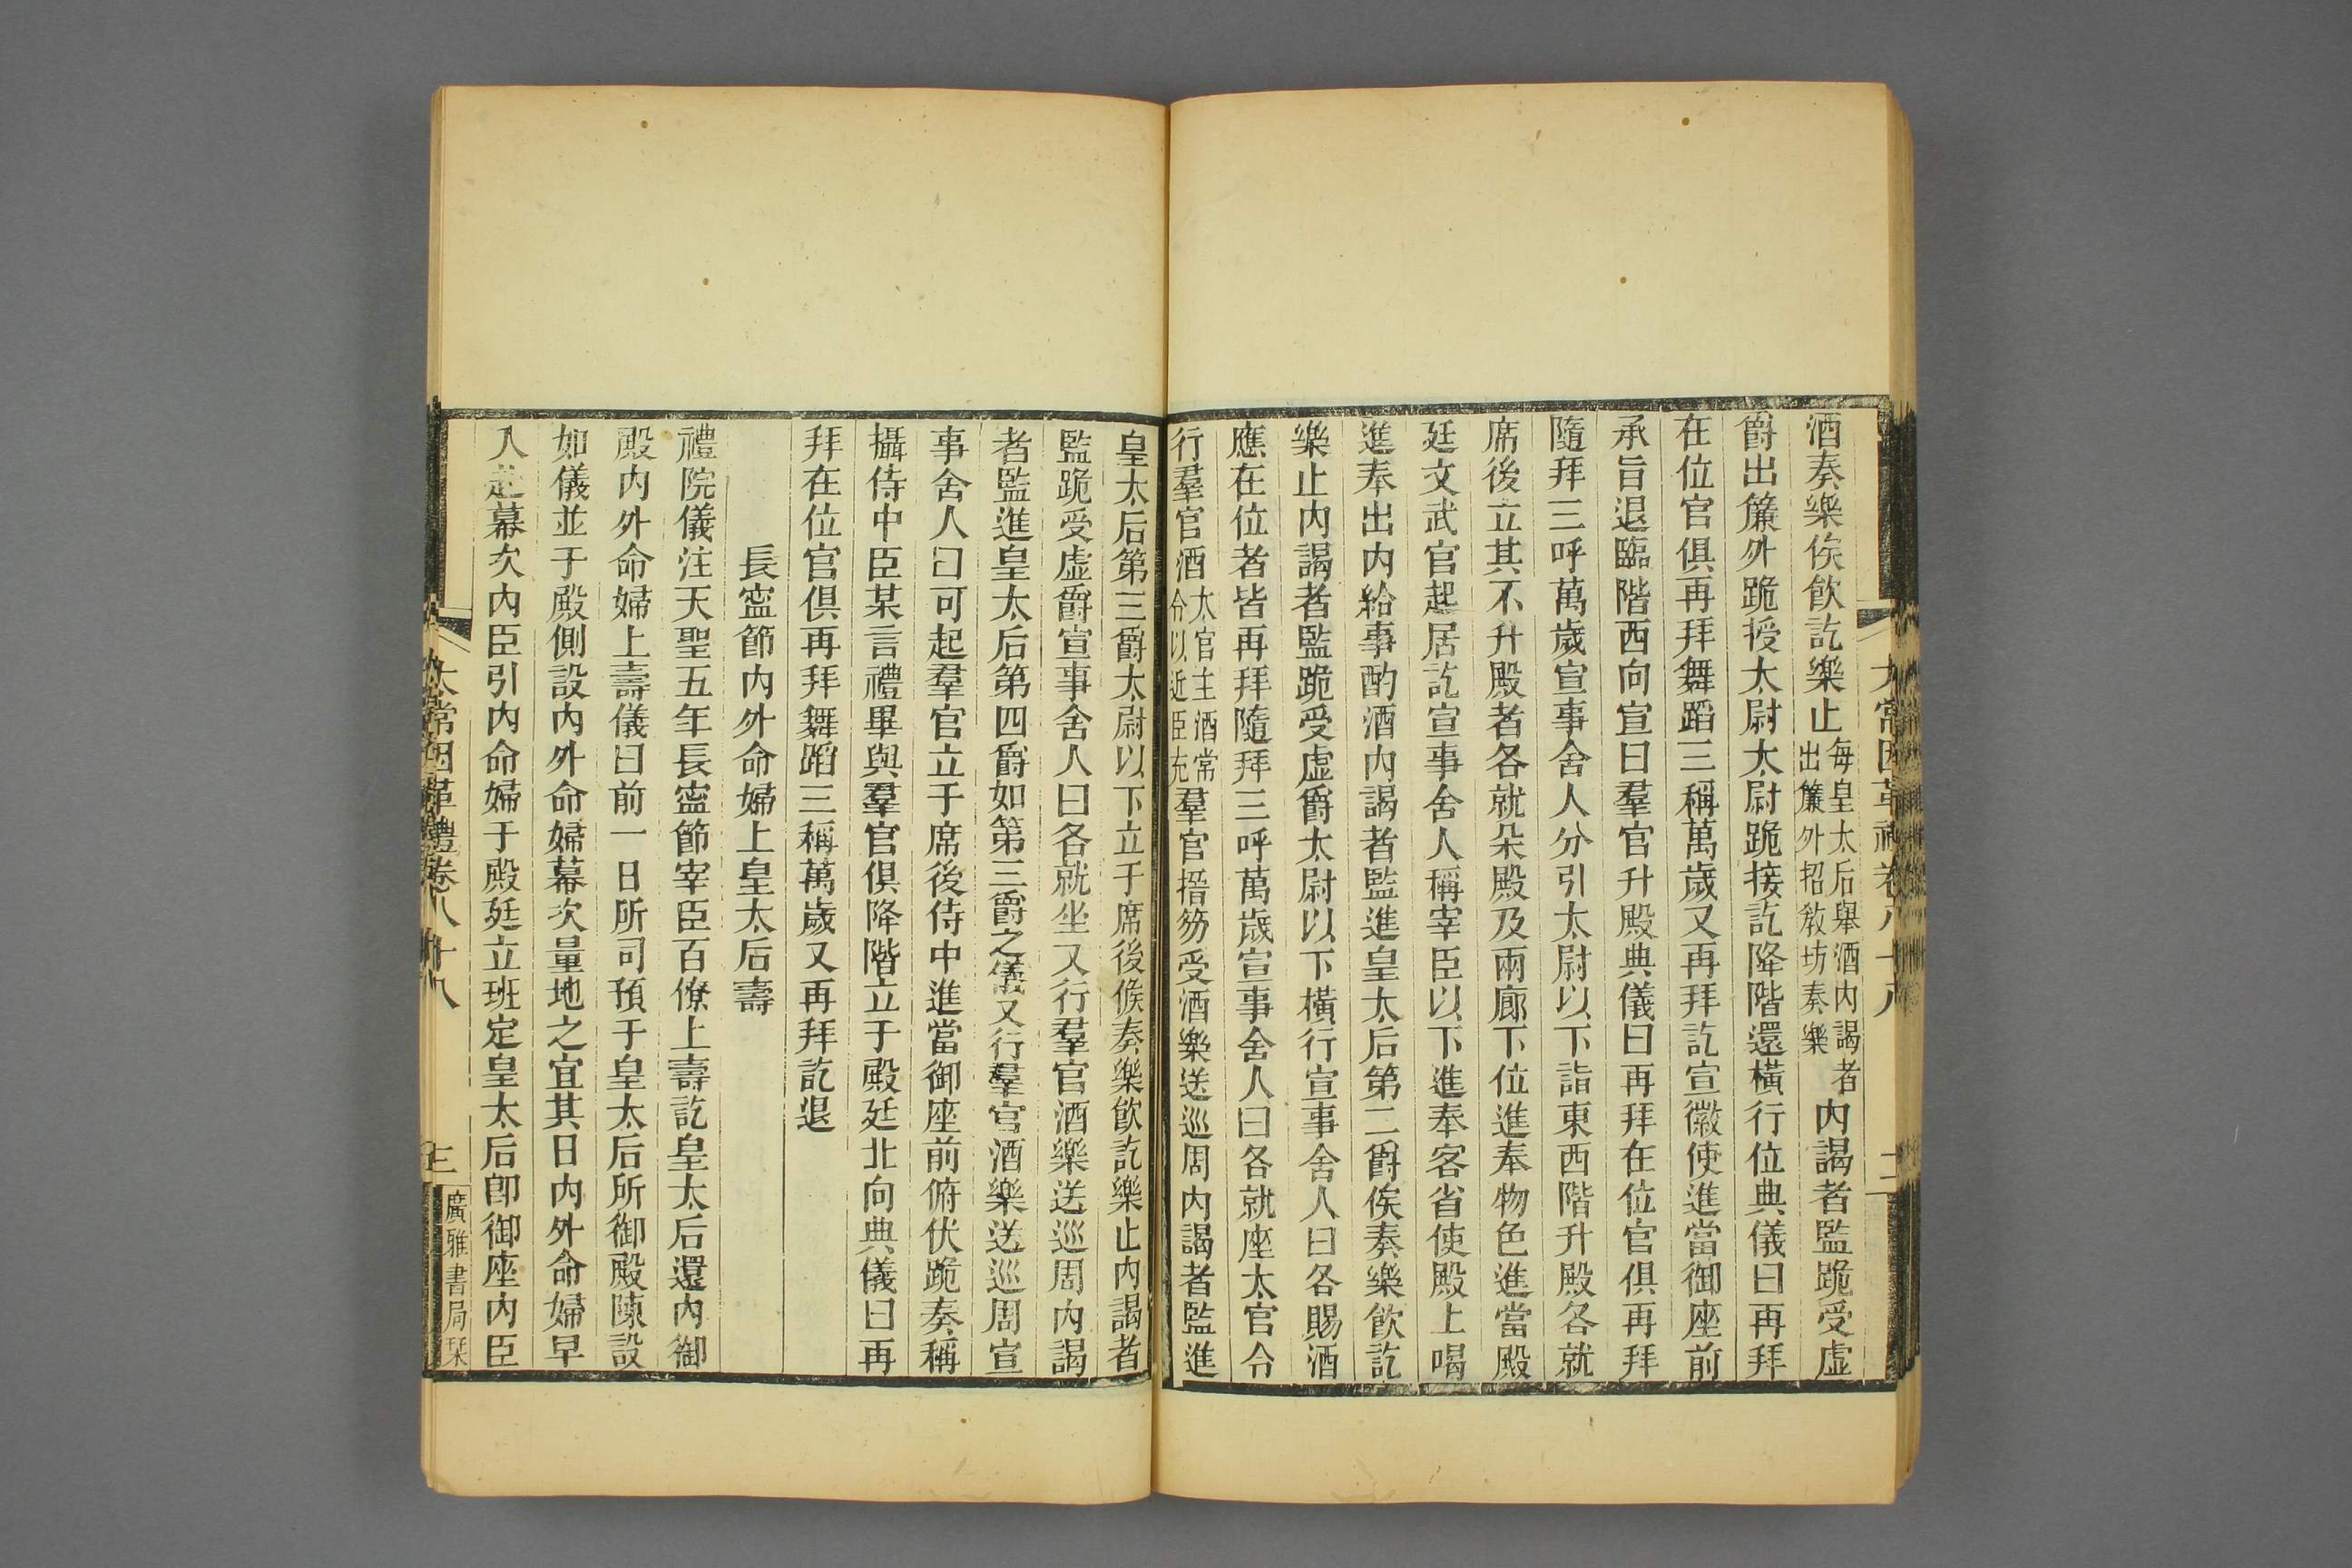 太常因革禮卷八十八
二
酒奏樂俟飮訖樂止每皇太后舉酒內謁者出簾外招敎坊奏樂內謁者監跪受虛
爵出簾外跪授太尉太尉跪接訖降階還橫行位典儀曰再拜
在位官俱再拜舞蹈三稱萬歲又再拜訖宣徽使進當御座前
承旨退臨階西向宣曰羣官升殿典儀曰再拜在位官俱再拜
隨拜三呼萬歲宣事舍人分引太尉以下詣東西階升殿各就
席後立其不升殿者各就朵殿及兩廊下位進奉物色進當殿
廷文武官起居訖宣事舍人稱宰臣以下進奉客省使殿上喝
進奉出內給事酌酒內謁者監進皇太后第二爵俟奏樂飮訖
樂止內謁者監跪受虛爵太尉以下橫行宣事舍人曰各賜酒
應在位者皆再拜隨拜三呼萬歲宣事舍人曰各就座太官令
行羣官酒太官主酒常令以近臣充羣官搢笏受酒樂送巡周內謁者監進
皇太后第三爵太尉以下立于席後候奏樂飮訖樂止內謁者
監跪受虛爵宣事舍人曰各就坐又行羣官酒樂送巡周內謁
者監進皇太后第四爵如第三爵之儀又行羣官酒樂送巡周宣
事舍人曰可起羣官立于席後侍中進當御座前俯伏跪奏稱
攝侍中臣某言禮畢與羣官俱降階立于殿廷北向典儀曰再
拜在位官俱再拜舞蹈三稱萬歲又再拜訖退
長寍節內外命婦上皇太后壽
禮院儀注天聖五年長寍節宰臣百僚上壽訖皇太后還內御
殿內外命婦上壽儀曰前一日所司預于皇太后所御殿陳設
如儀並于殿側設內外命婦幕次量地之宜其日內外命婦早
入赴幕次內臣引內命婦于殿廷立班定皇太后卽御座內臣
太常因革禮卷八十八
三
廣雅書局栞